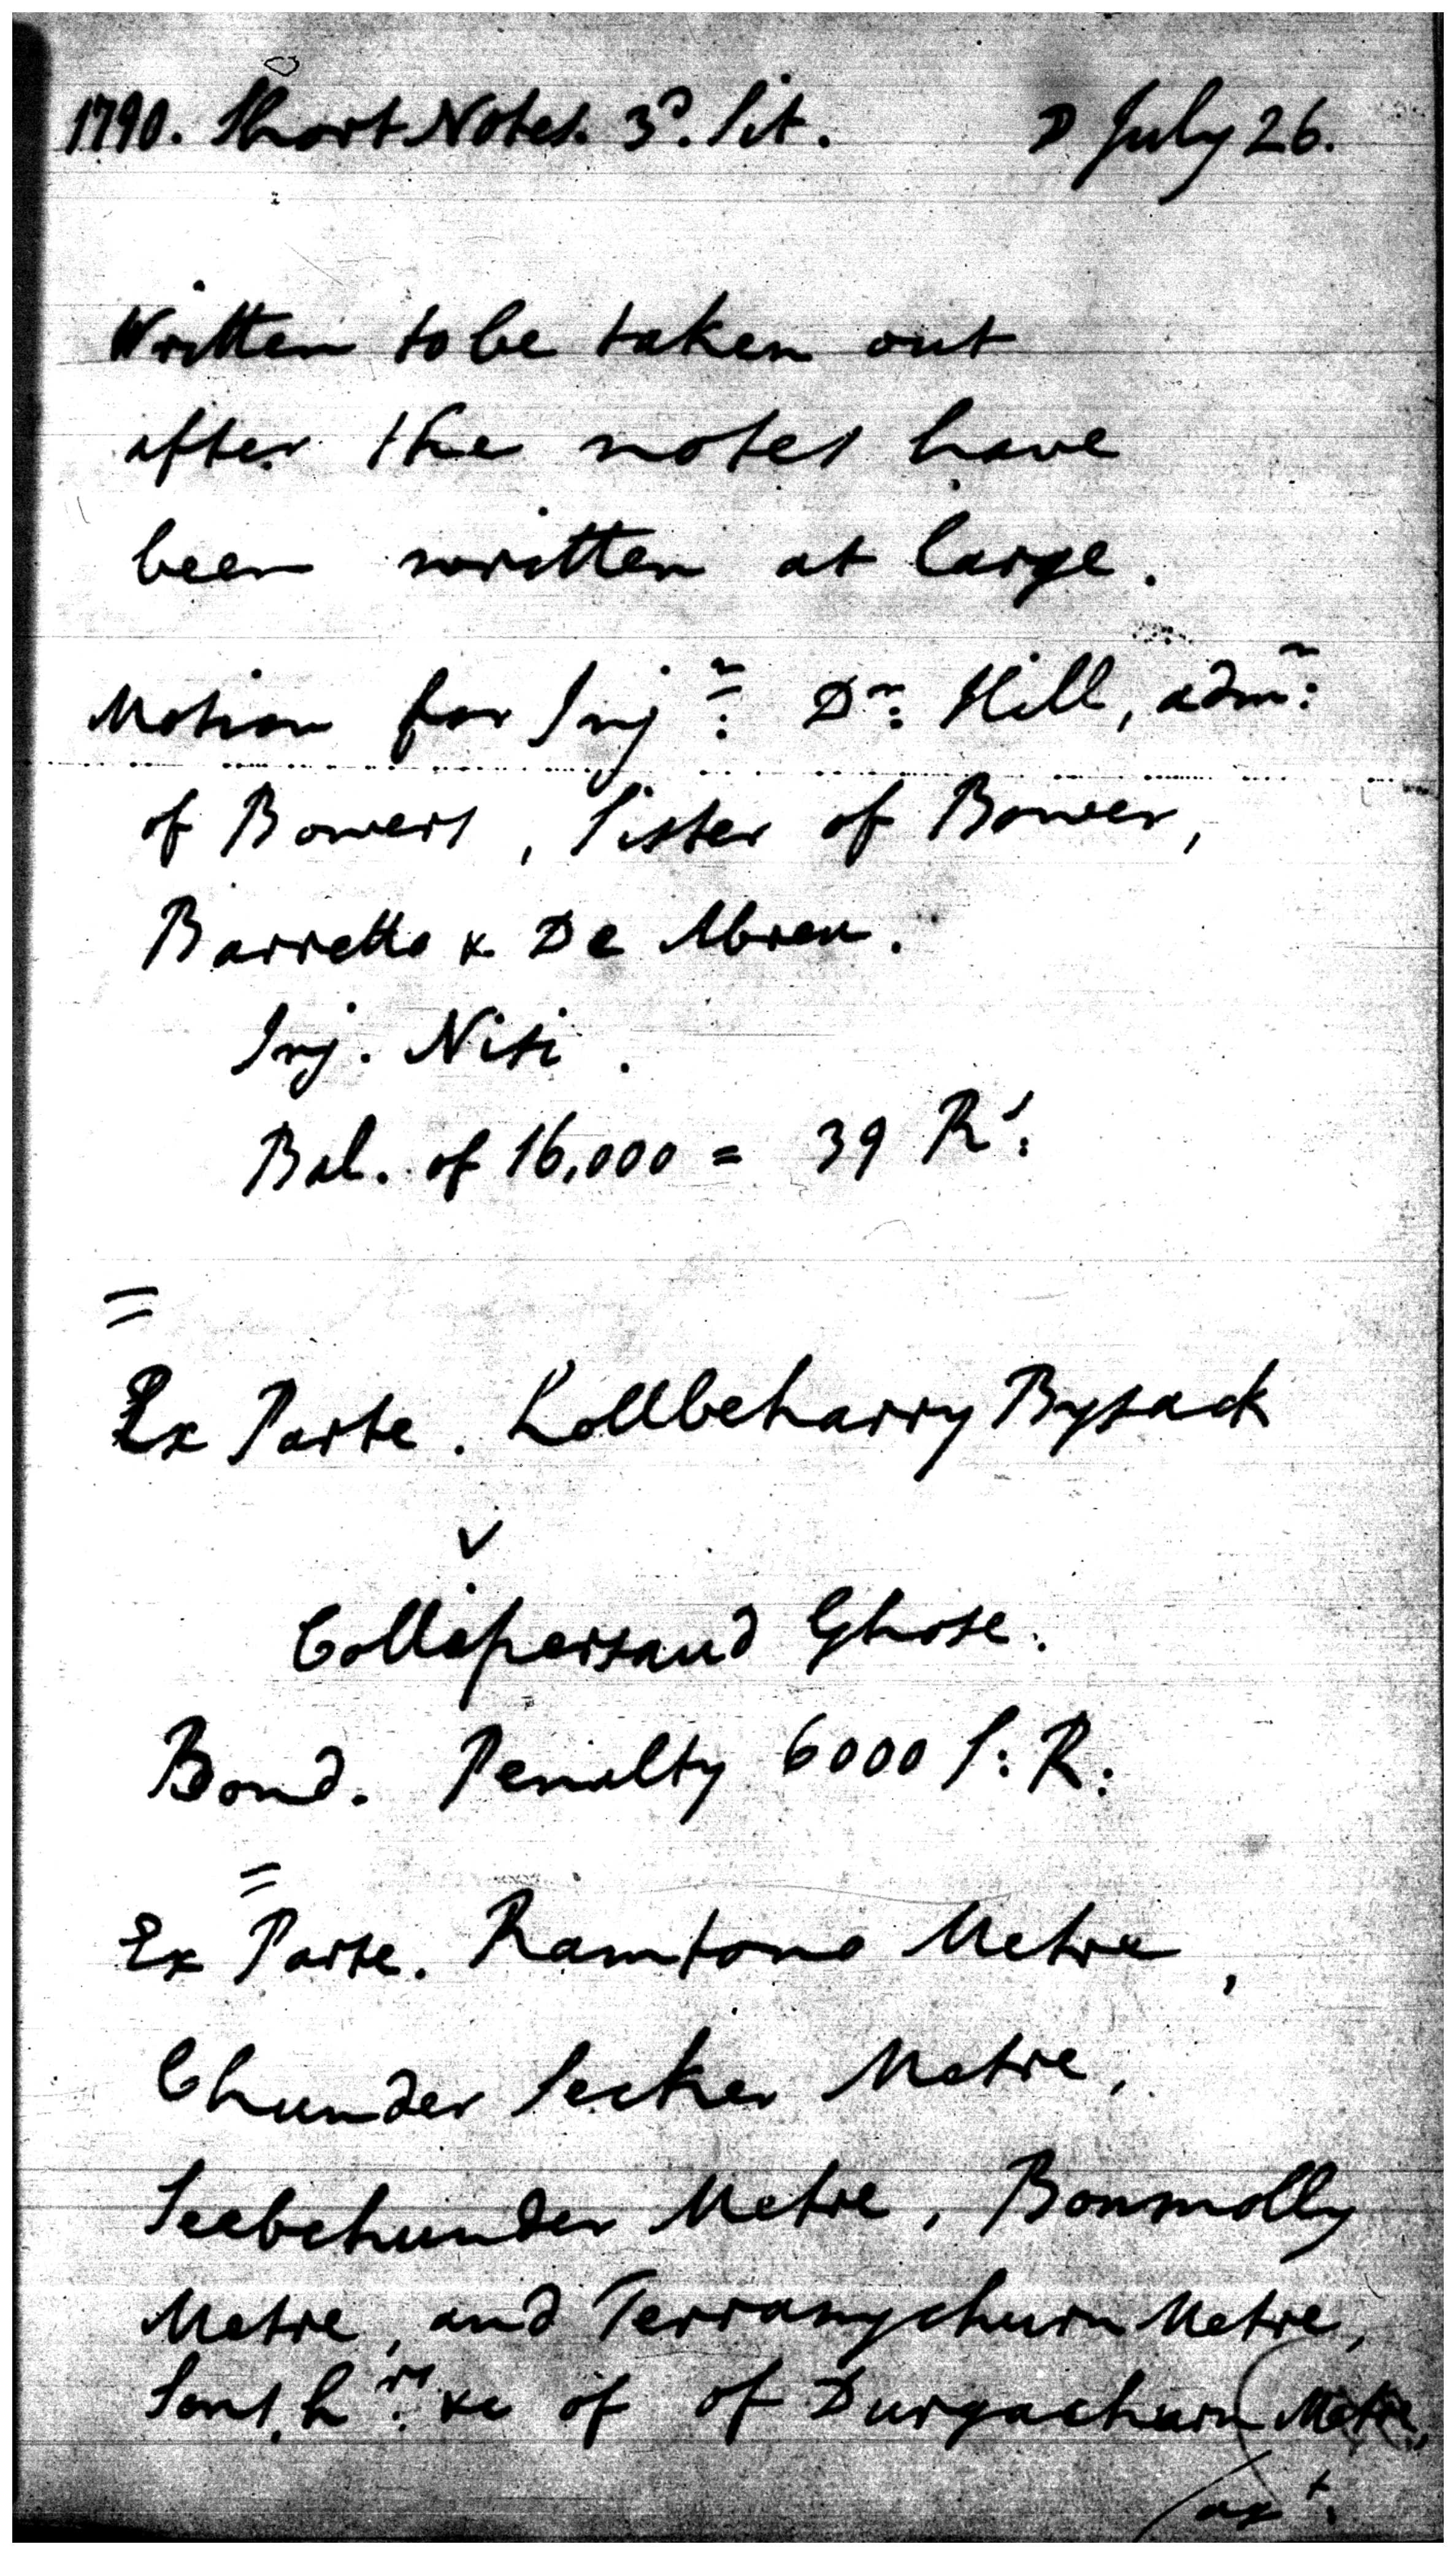 1790. Short Notes. 3d. Sit. D July 26.
Written to be taken out
after the notes have
been written at large.
Motion for Injn: Dr: Hill, admr:
of Bowers, Sister of Bower,
Barretto & De Abreu.
Inj. Nisi.
Bal. of 16,000 = 39 Rs:
=
Ex Parte. Lollbeharry Bysack
v
Collypersaud Ghose.
Bond. Penalty 6000 S: R:
=
Ex Parte. Ramtono Metre,
Chunder Seeker Metre,
Seebchunder Metre, Bonmolly
Metre, and Terranychurn Metre,
Sons, hrs: &c of of Durgachurn Metre,
agt: